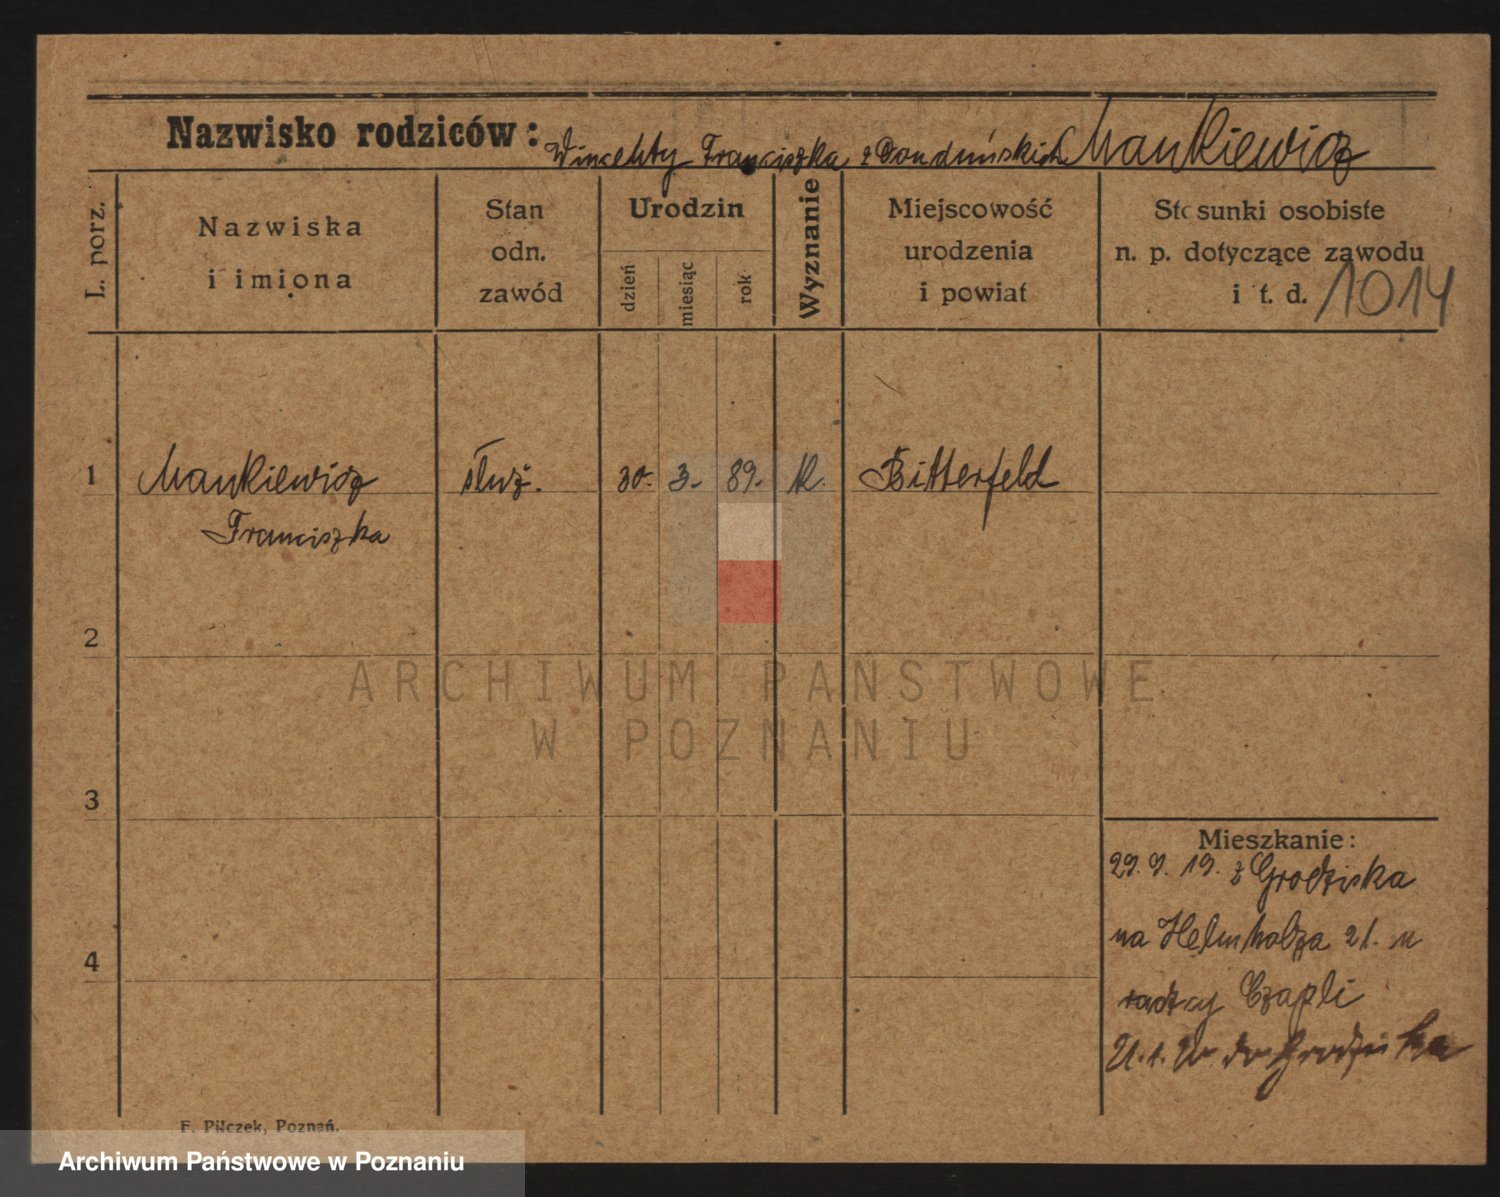 Nazwisko rodziców: Wincenty Franciszka z Mankiewicz
L. porz.
Nazwiska i imiona
Stan odn. zawód
Urodzin
dzień
miesiąc
rok
Wyznanie
Miejscowość urodzenia i powiat
Stosunki osobiste n. p. dotyczące zawodu i t. d.
1014
1 Mankiewicz służ. 30. 3. 89. k. Bitterfeld
Franciszka
2
3
4
Mieszkanie:
29. 9. 19. z Grodziska
na Helmholza 21. u
radcy Czapli
21. 1. 20 do Grodziska
F. Pilczek, Poznań.
ARCHIWUM PAŃSTWOWE
W POZNANIU
Archiwum Państwowe w Poznaniu